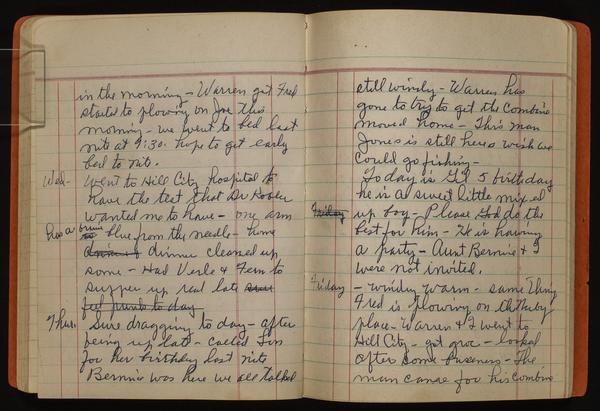 in the morning - Warren got Fred
started to plowing on Joe this
morning - we went to bed last
nite at 9:30. hope to get early
bed to nite.
Wed- Went to Hill City hospital to
have the test that Dr
wanted me to have - one arm
has a bruise blue from the needle - home
dinner cleaned up
some - Had Verle & Fern to
supper up real late
feel punk to day
Thur. Sure dragging to day - after
being up late - called
for her birthday last nite
Bernie was here we all talked
still windy - Warren has
gone to try to get the combine
moved home - This man
Jones is still here wish we
could go fishing -
Today is 5 birthday
he is a sweet little mixed
Friday up boy - Please God do the
best for him - He is having
a party - Aunt Bernie & I
were not invited.
Friday - windy warm - same thing
Fred is plowing on
place - Warren & I went to
Hill City - got groc - looked
after some business - The
man came for his combine